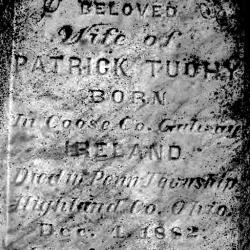 BELOVED
Wife of
PATRICK TUOHY
BORN
In Coose Co. Galway
IRELAND.
Died in Penn Township
Highland Co. Ohio.
Dec. 4. 1882.